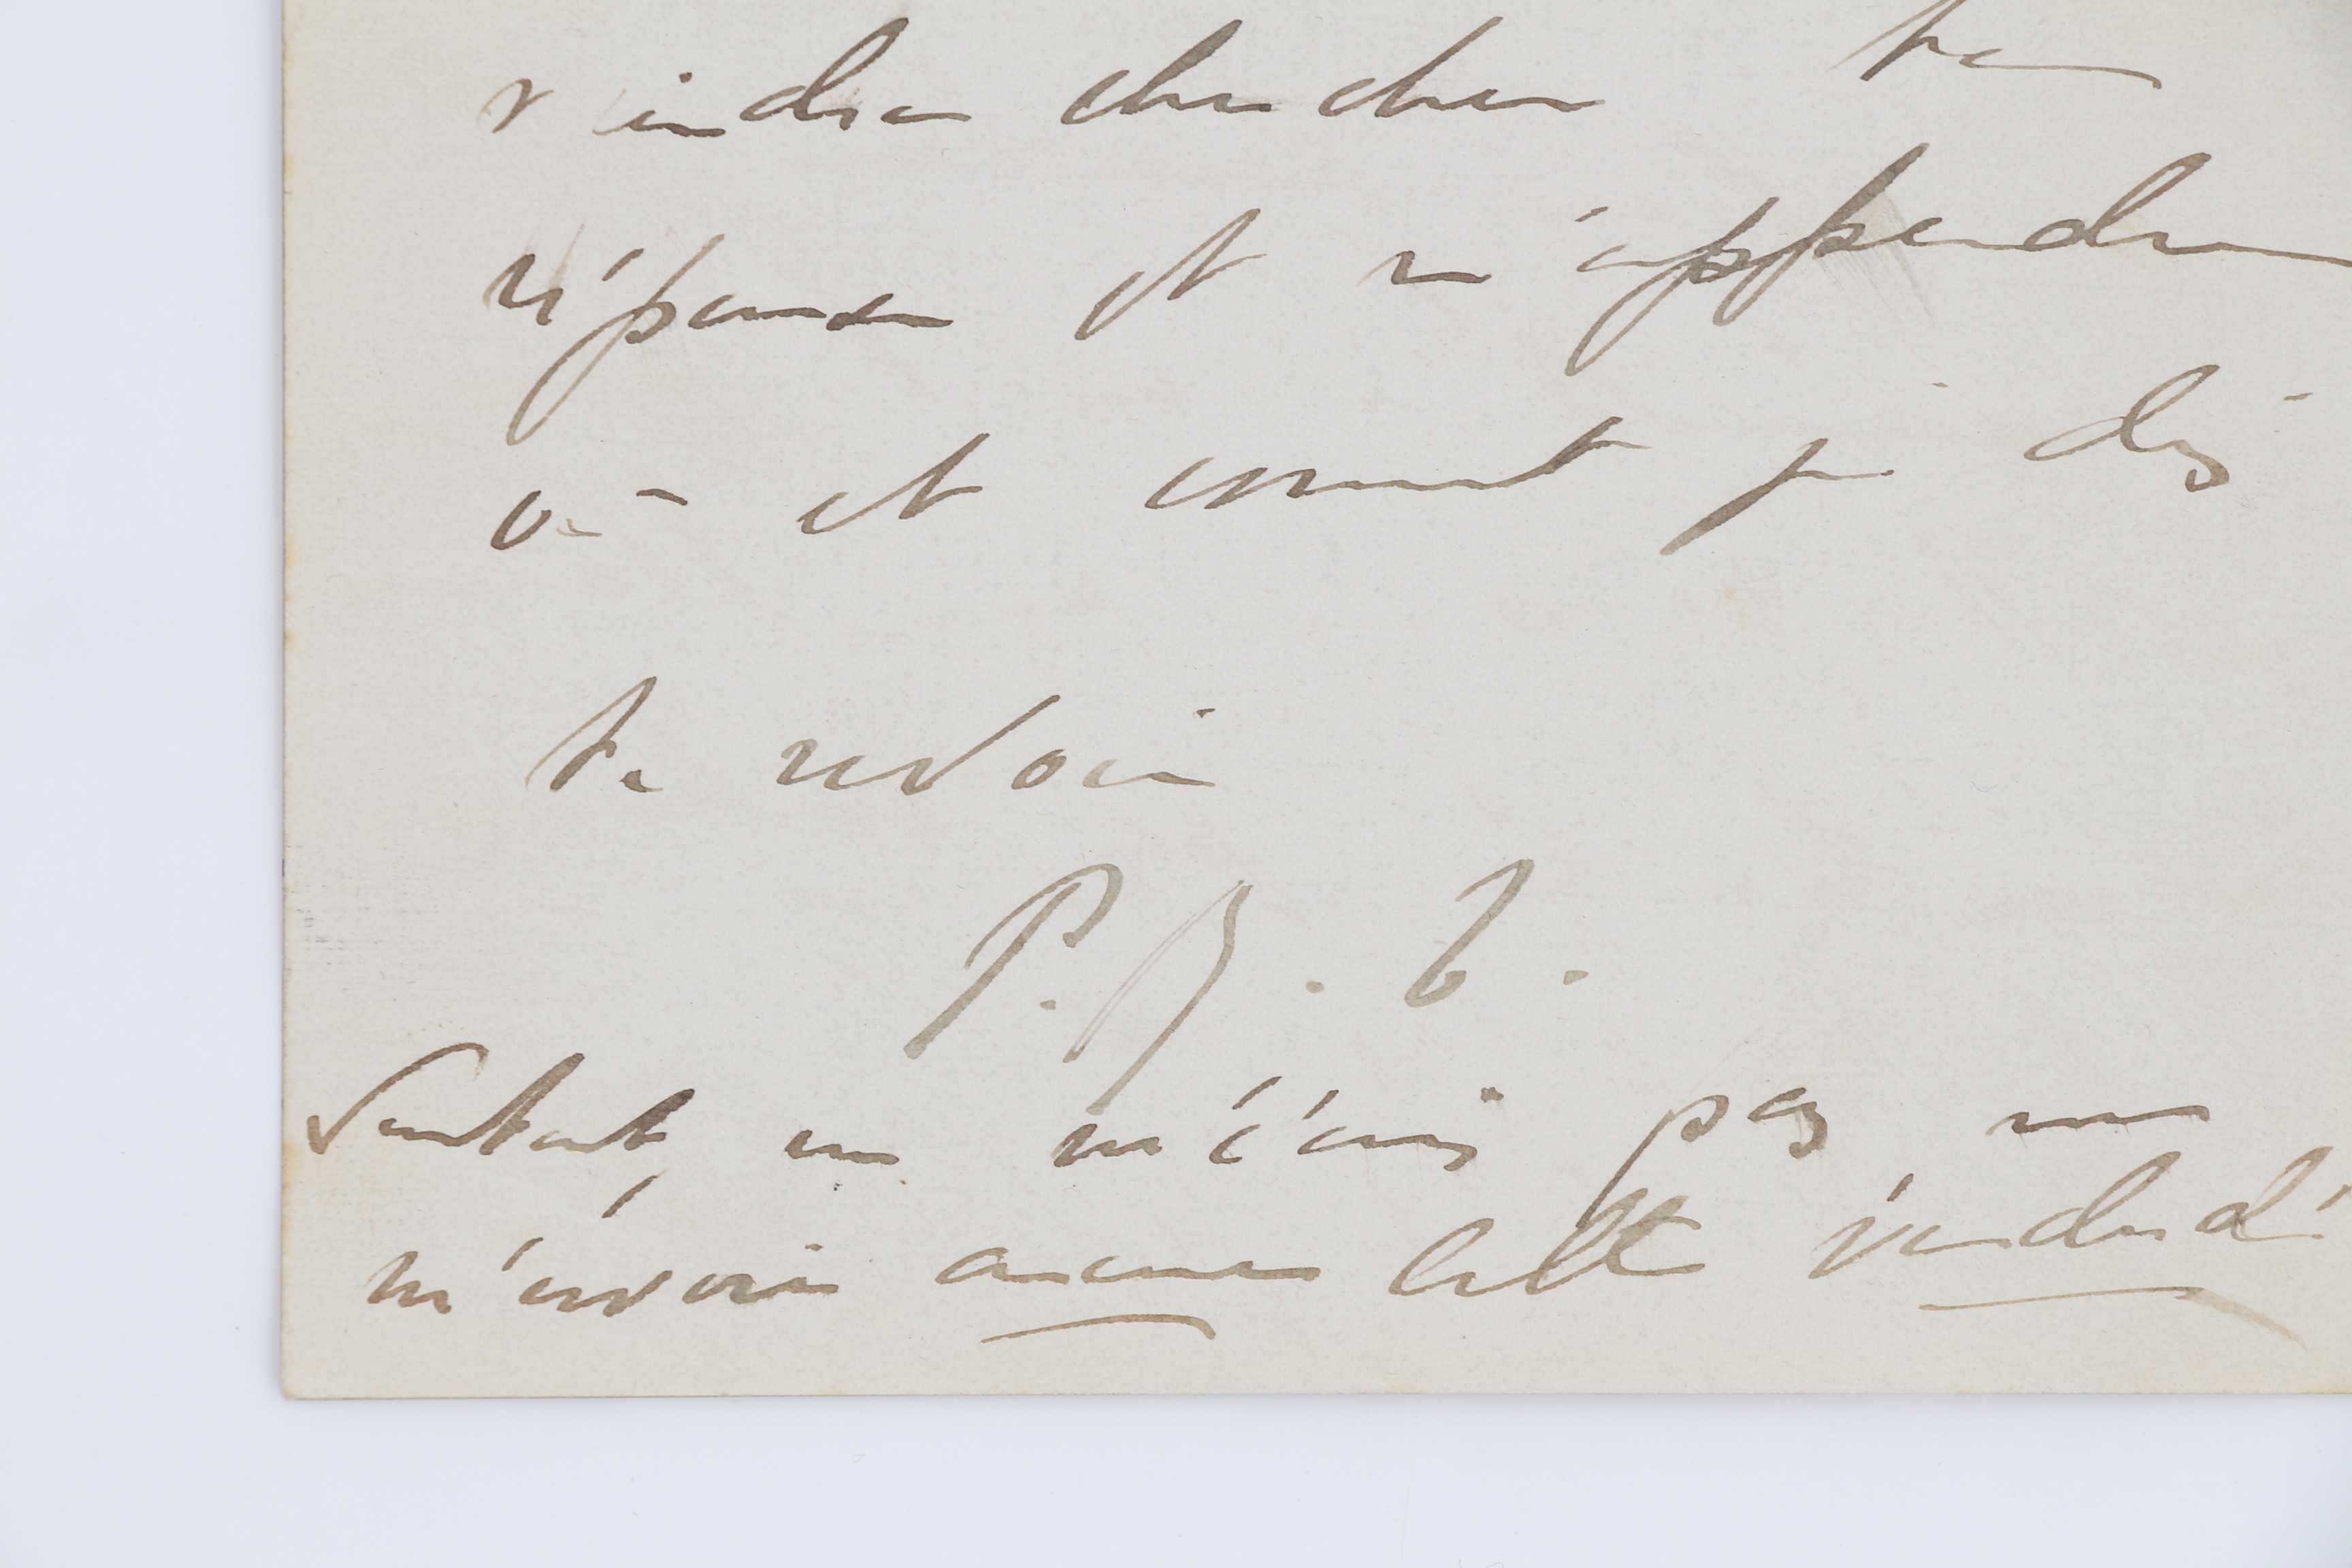 viendra chercher ta
réponse et m'apprendra
où et comment je dois
te revoir
P. B.
Surtout, ne m'écris pas, ne
m'envoie aucune lettre vendredi